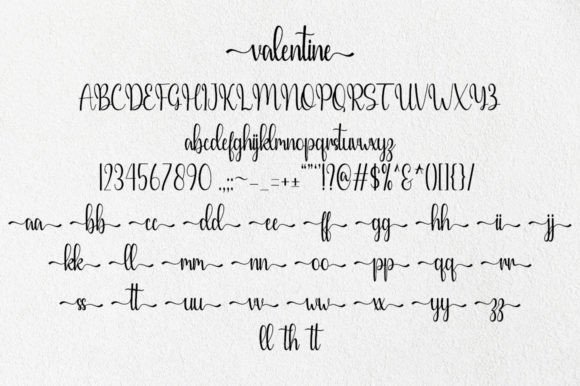 valentine
ABCDEFGHIJKLMNOPQRSTUVWXYZ
abcdefghijklmnopqrstuvwxyz
1234567890 .,;:~-_=+±“”‘’!?@#$%^&*()[]{}/
aa bb cc dd ee ff gg hh ii jj
kk ll mm nn oo pp qq rr
ss tt uu vv ww xx yy zz
ll th tt